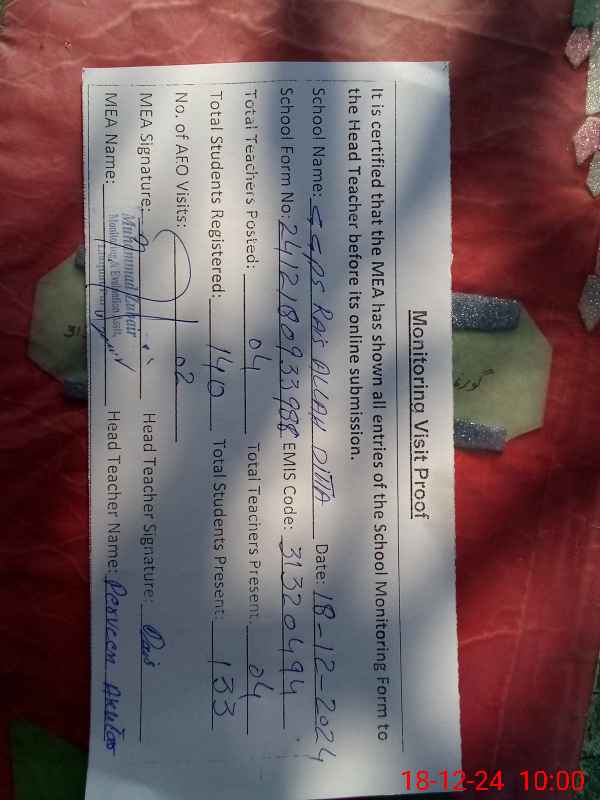 Monitoring Visit Proof
It is certified that the MEA has shown all entries of the School Monitoring Form to
the Head Teacher before its online submission.
School Name: GGPS RAIS ALLAH DITTA Date: 18-12-2024
School Form No: 2412180933988 EMIS Code: 31320494
Total Teachers Posted: 04 Total Teachers Present: 04
Total Students Registered: 140 Total Students Present: 133
No. of AEO Visits: 02
MEA Signature: Head Teacher Signature:
MEA Name: Muhammad Head Teacher Name: Perveen Akhtar
Monitoring & Evaluation
18-12-24 10:00